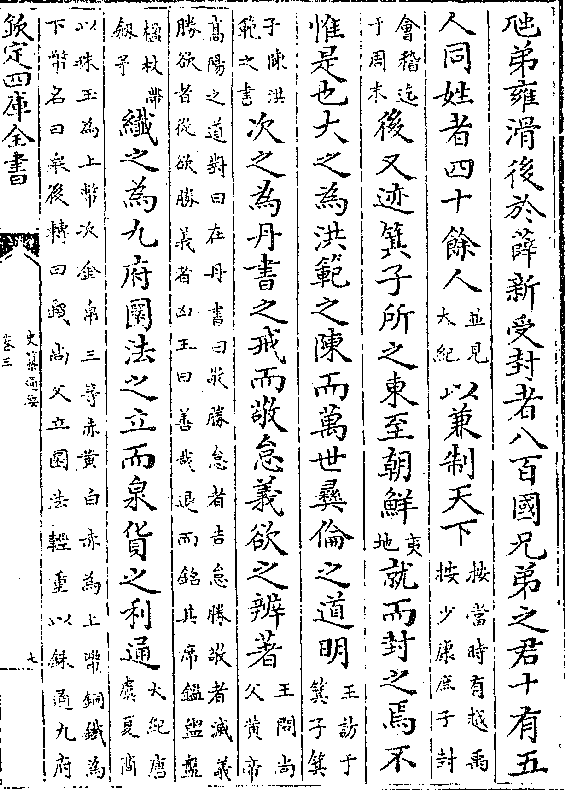 虺弟雍滑後於薛新受封者八百國兄弟之君十有五
人同姓者四十餘人並見大紀以兼制天下按當時有越禹按少康庶子封
會稽迄于周末後又迹箕子所之東至朝鮮夷地就而封之焉不
惟是也大之為洪範之陳而萬世彝倫之道明王訪于箕子箕
子陳洪範之書次之為丹書之戒而敬怠義欲之辨著王問尚父黄帝
髙陽之道對曰在丹書曰敬勝怠者吉怠勝敬者滅義
勝欲者從欲勝義者凶王曰善哉退而銘其席鑑盥盤
楹杖帶劔矛纎之為九府圜法之立而泉貨之利通大紀唐虞夏商
以珠玉為上幣次金帛三等赤黄白赤為上幣銅鐵為
下幣名曰泉後轉曰錢尚父立圜法輕重以銖通九府
欽定四庫全書
史纂通要
卷三
七